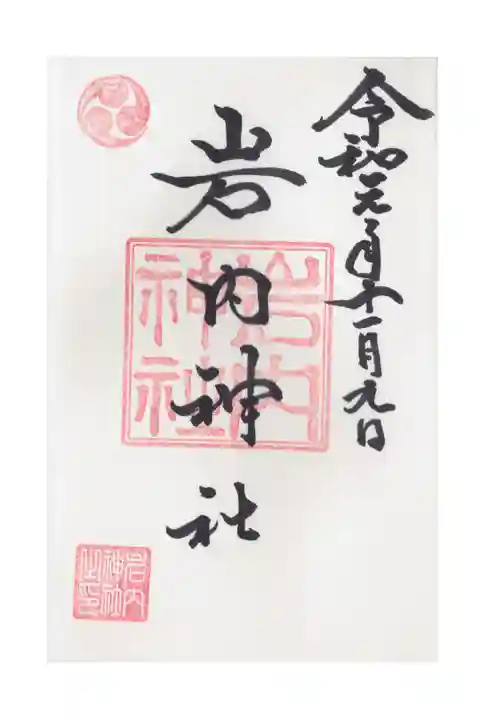 令和元年十一月九日
岩内神社
岩内神社
岩内神社之印